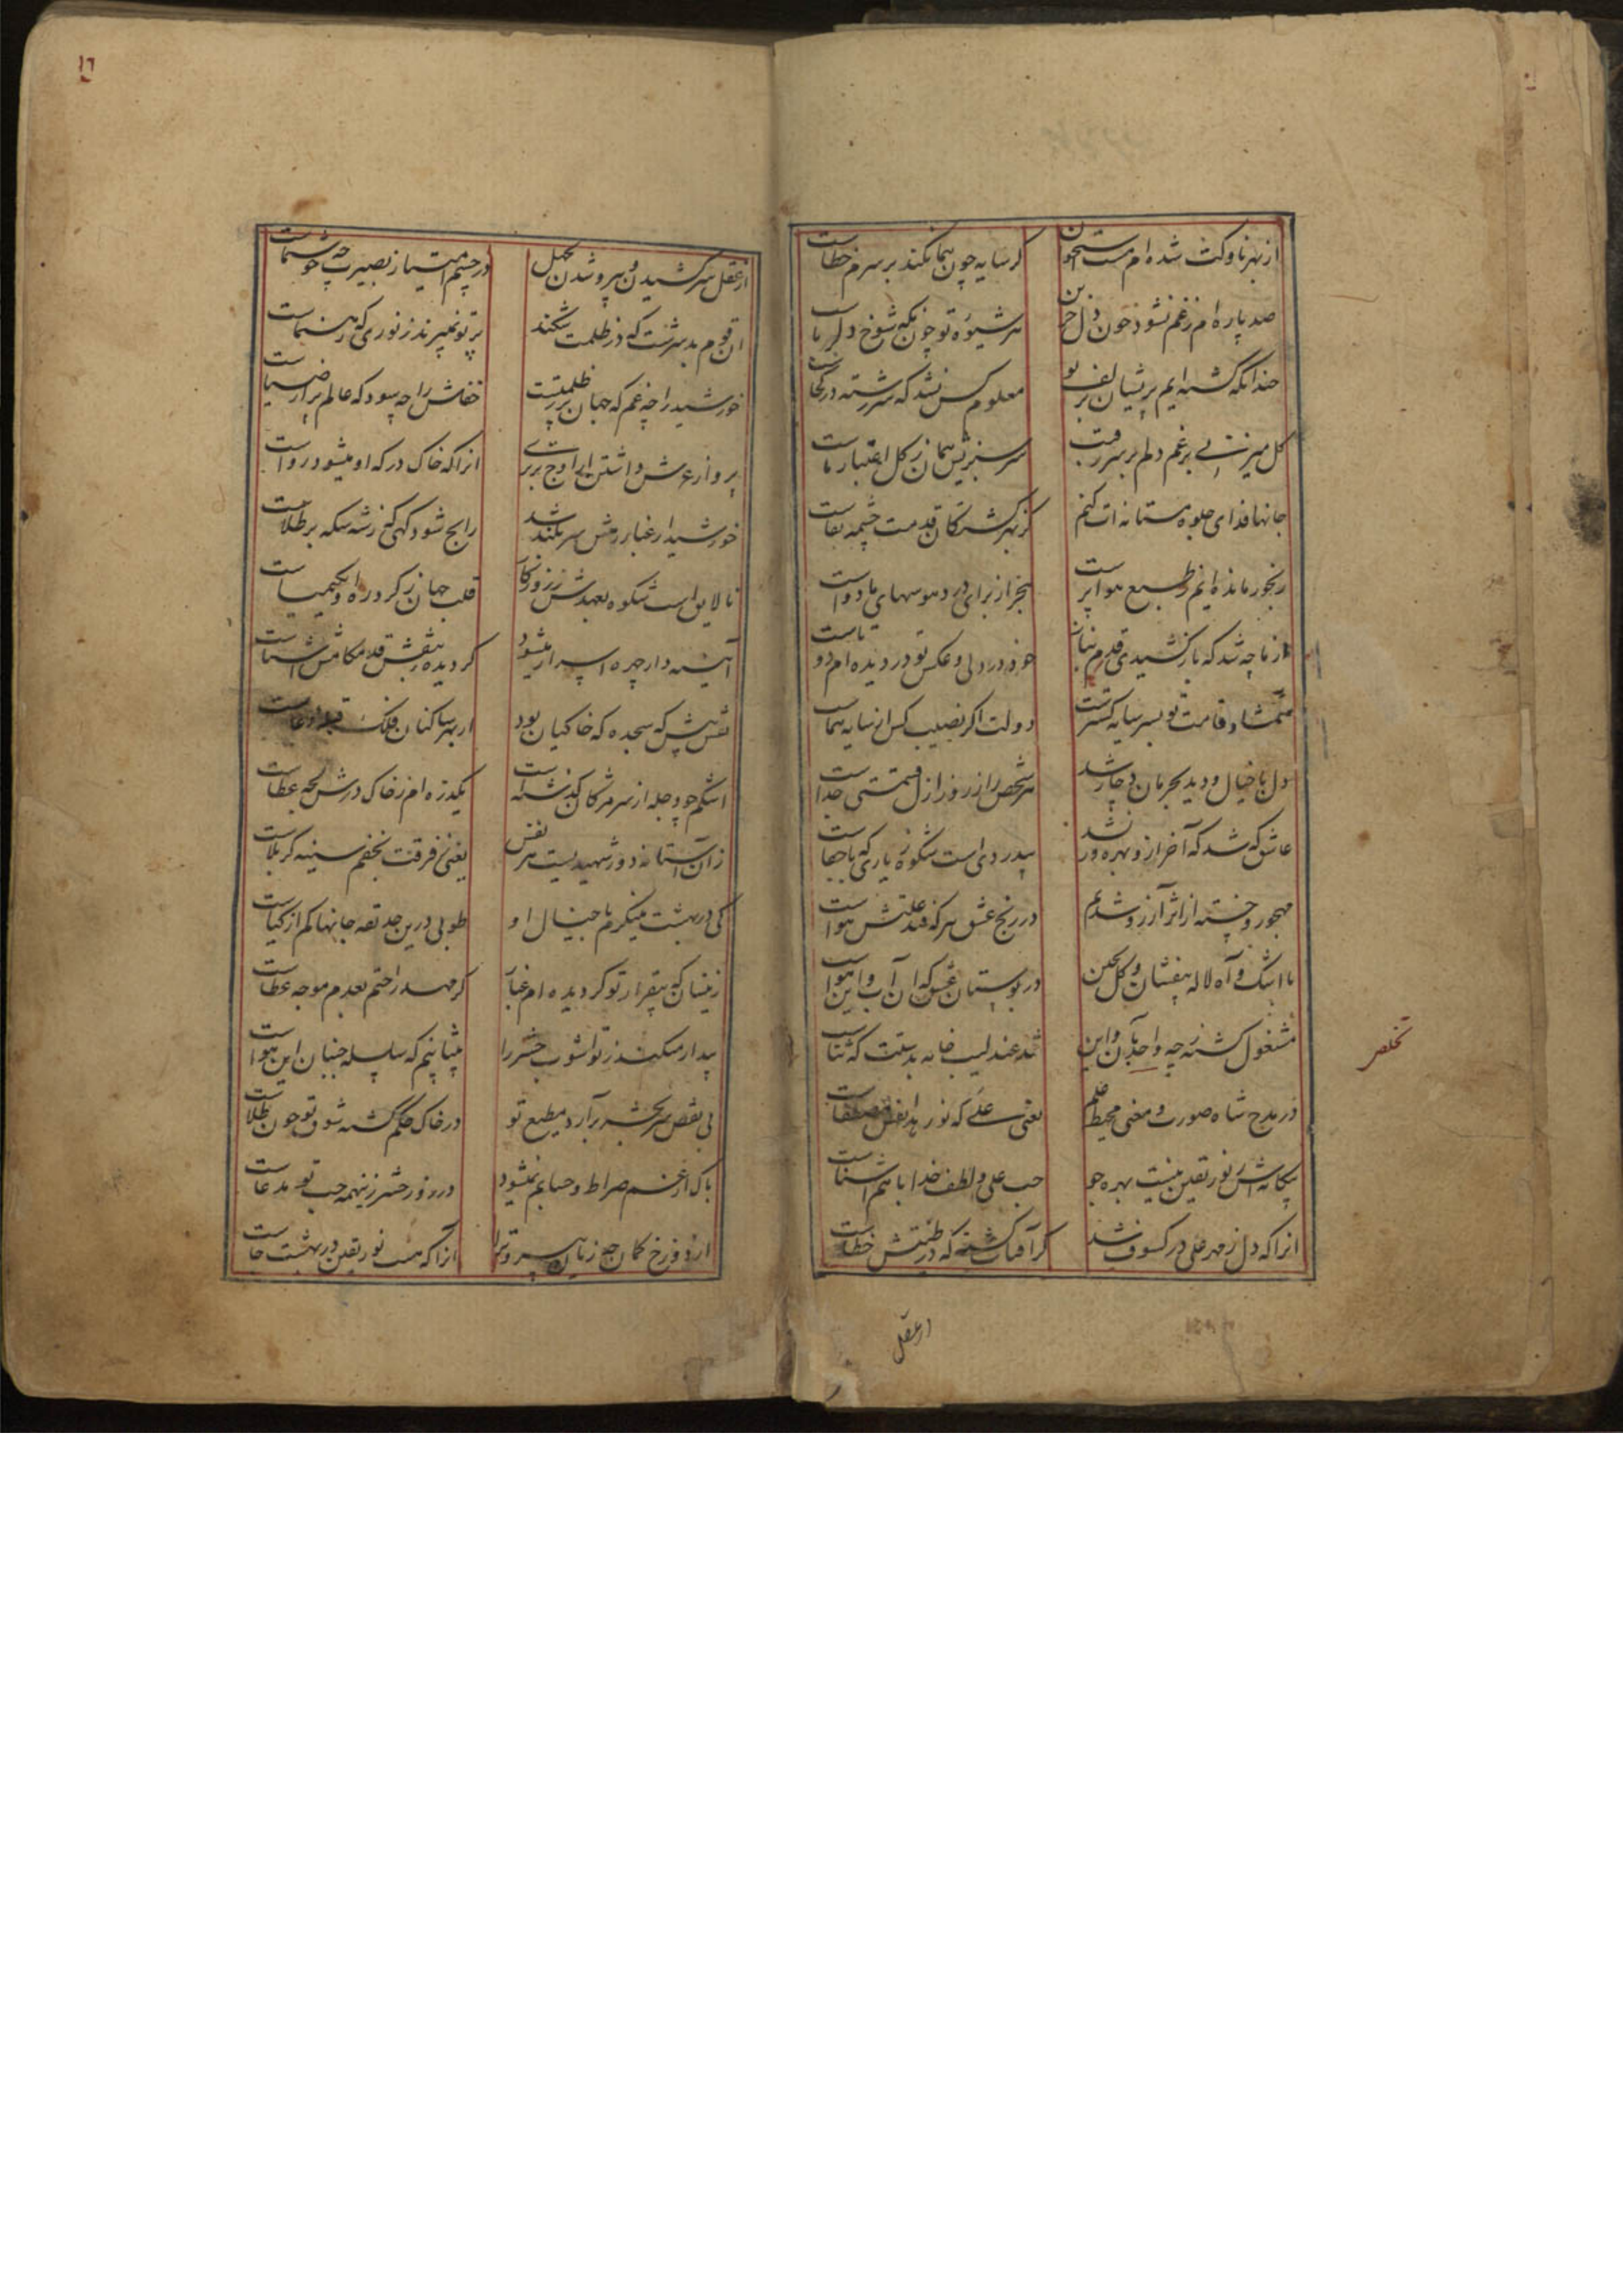 از بهر ناوکت شده‌ام مشت استخوان
گر سایه چون هما نکند بر سرم خطاست
صد پاره‌ام ز غم نشود چون دل حزین
هر شیوه تو چون نگه شوخ دلرباست
چندانکه گشته‌ایم پریشان زلف تو
معلوم کس نشد که سر رشته در کجاست
گل میزنی برغم دلم بر سر رقیب
سرسبزیش همان ز گل اعتبار ماست
جانها فدای جلوه مستانه‌ات کنم
کز بهر کشتگان قدمت چشمه بقاست
رنجور مانده‌ایم و طبیع هوا پرست
از برای درد هوسهای ما دواست
از ما چه شد که باز کشیدی قدم
خود در دلی و عکس تو در دیده‌ام دوتاست
شمشاد قامت تو بسر سایه گسترست
دولت اگر نصیب کس از سایه هماست
دل با خیال و دیده بحرمان دچار شد
هر شخص را ز روز ازل قسمتی جداست
عاشق که شد که آخر ازو بهره‌ور نشد
بیدردی است شکوه ز یاری که باجفاست
مهجور و خسته از اثر آرزو شدیم
در رنج عشق هر که فتد علتش هواست
با اشک و آه لاله بیفشان و گل بچین
در بوستان عشق که آن آب و این هواست
مشغول گشته‌ز چه واجد بآن و این
شد عندلیب خامه بدستت که ثناست
در مدح شاه صورت و معنی محیط علم
یعنی علی که نور هدا نفس مصطفاست
بیگانه‌اش ز نور یقین نیست بهره جو
حب علی و لطف خدا باهم آشناست
انرا که دل ز مهر علی در کسوف شد
گر آفتاب گشته که در طینتش خطاست
تخلص
از عقل
۱۶
از عقل سر کشیدن و پیرو شدن بجهل
در چشم امتیاز بصیرت چه خوشنماست
ان قوم بدسرشت که در ظلمت شکند
پرتو نمیبرند ز نوری که رهنماست
خورشید را چه غم که جهان پر ز ظلمتست
خفاش را چه سود که عالم پر از ضیاست
پرواز عرش داشتن از اوج برتری
انرا که خاک درگه او میشود رواست
خورشید از غبار رهش سر بلند شد
رایج شود کهی که زشه سکه بر طلاست
نا لایق است شکوه بعهدش ز روزگار
قلب جهان ز گرد ره او کیمیاست
آیینه‌دار چهره اسرار میشود
گردیده‌ بنقش قدمگاهش آشناست
نقش پیش که سجده که خاکیان بود
از بهر ساکنان فلک قبله دعاست
اشکم چو دجله از سر مژگان گذشته است
یکذره‌ام ز خاک درش لجه عطاست
زان آستانه دور شهیدیست هر نفس
یعنی ز فرقت نجفم سینه کربلاست
کی در بهشت مینگرم با خیال او
طوبی درین حدیقه جانها کم از گیاست
زینسان که بیقرار تو گردیده‌ام غبار
گر مهد راحتم بعدم موجه عطاست
بیدار میکنند ز تو اشوب حشر را
بیتابیم که سلسله جنبان این هواست
بی نقص سر بحشر برآرد مطیع تو
در خاک حکم گشته شوق تو چون طلاست
باک از غم صراط و حسابم نمیشود
در روز حشر زینهمه حب تو مدعاست
از دوزخ گمان چه زیان پیرو ترا
انرا که هست نور یقین در بهشت جاست